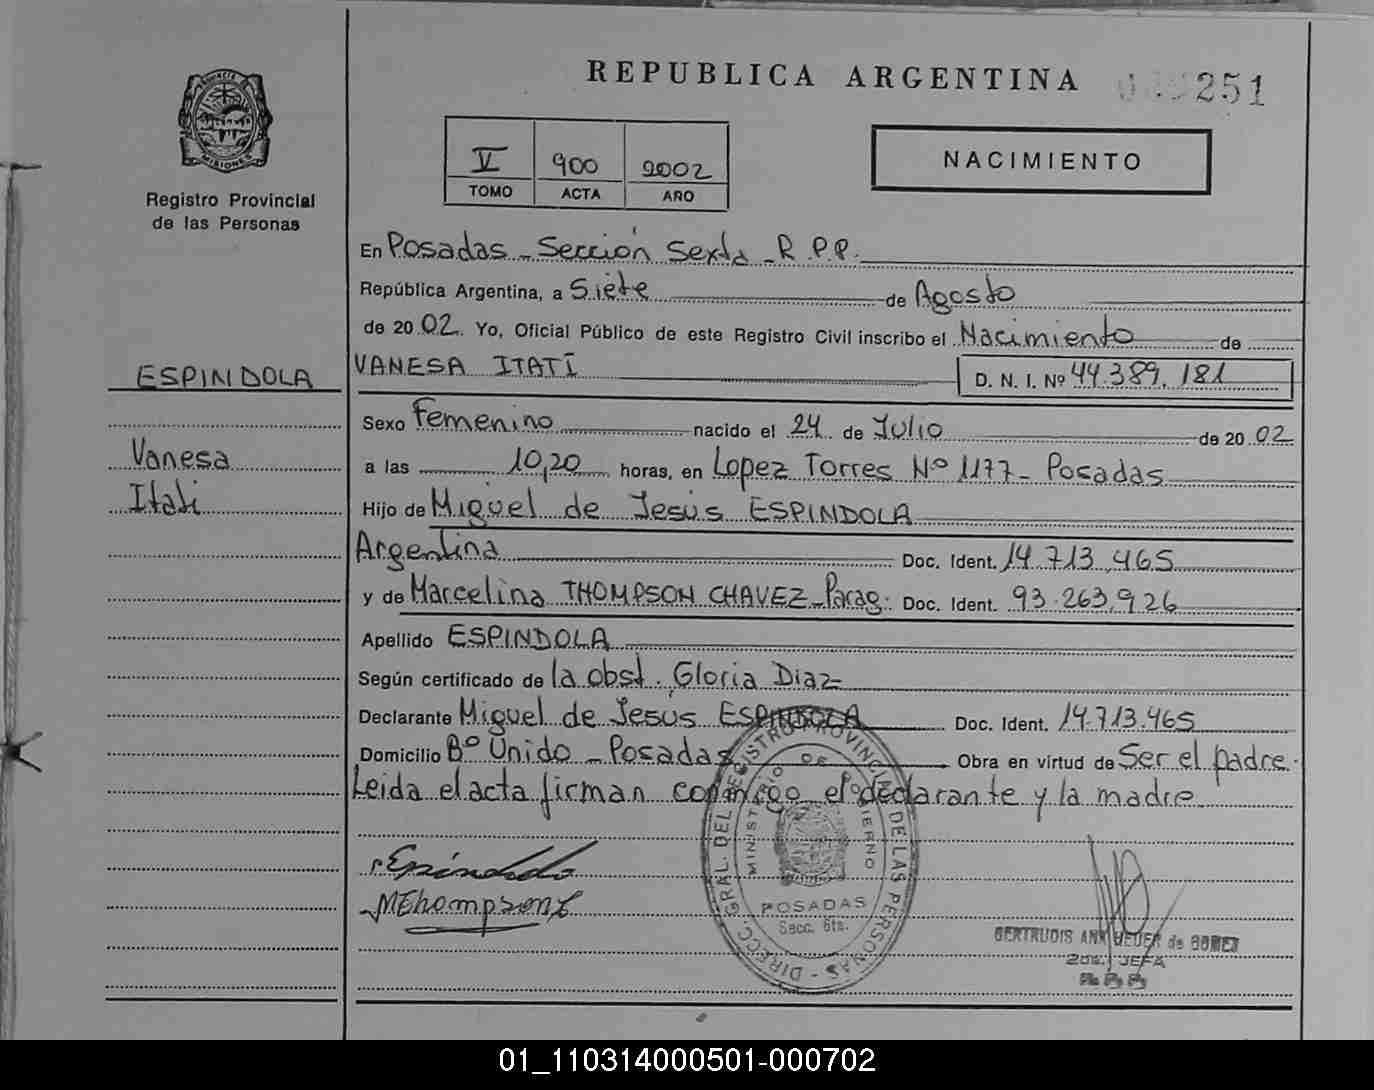 REPUBLICA ARGENTINA
251
MISIONES
Registro Provincial
de las Personas
V 900 2002
TOMO ACTA AÑO
NACIMIENTO
ESPINDOLA
Vanesa
Itati
En Posadas - Sección Sexta - R.P.P.
República Argentina, a Siete de Agosto
de 2002. Yo, Oficial Público de este Registro Civil inscribo el Nacimiento de
VANESA ITATÍ D. N. I. Nº 44.389.181
Sexo Femenino nacido el 24 de Julio de 2002
a las 10,20 horas, en Lopez Torres Nº 1177 - Posadas
Hijo de Miguel de Jesús ESPINDOLA
Argentina Doc. Ident. 14.713.465
y de Marcelina THOMPSON CHAVEZ - Parag. Doc. Ident. 93.263.926
Apellido ESPINDOLA
Según certificado de la obst. Gloria Diaz
Declarante Miguel de Jesús ESPINDOLA Doc. Ident. 14.713.465
Domicilio Bº Unido - Posadas Obra en virtud de Ser el padre.
Leida el acta firman conmigo el declarante y la madre
DIRECC. GRAL. DEL REGISTRO PROVINCIAL DE LAS PERSONAS
MINISTERIO DE GOBIERNO
POSADAS
Secc. 6ta.
GERTRUDIS ANA de GOMEZ
2da. JEFA
R.P.P.
01_110314000501-000702